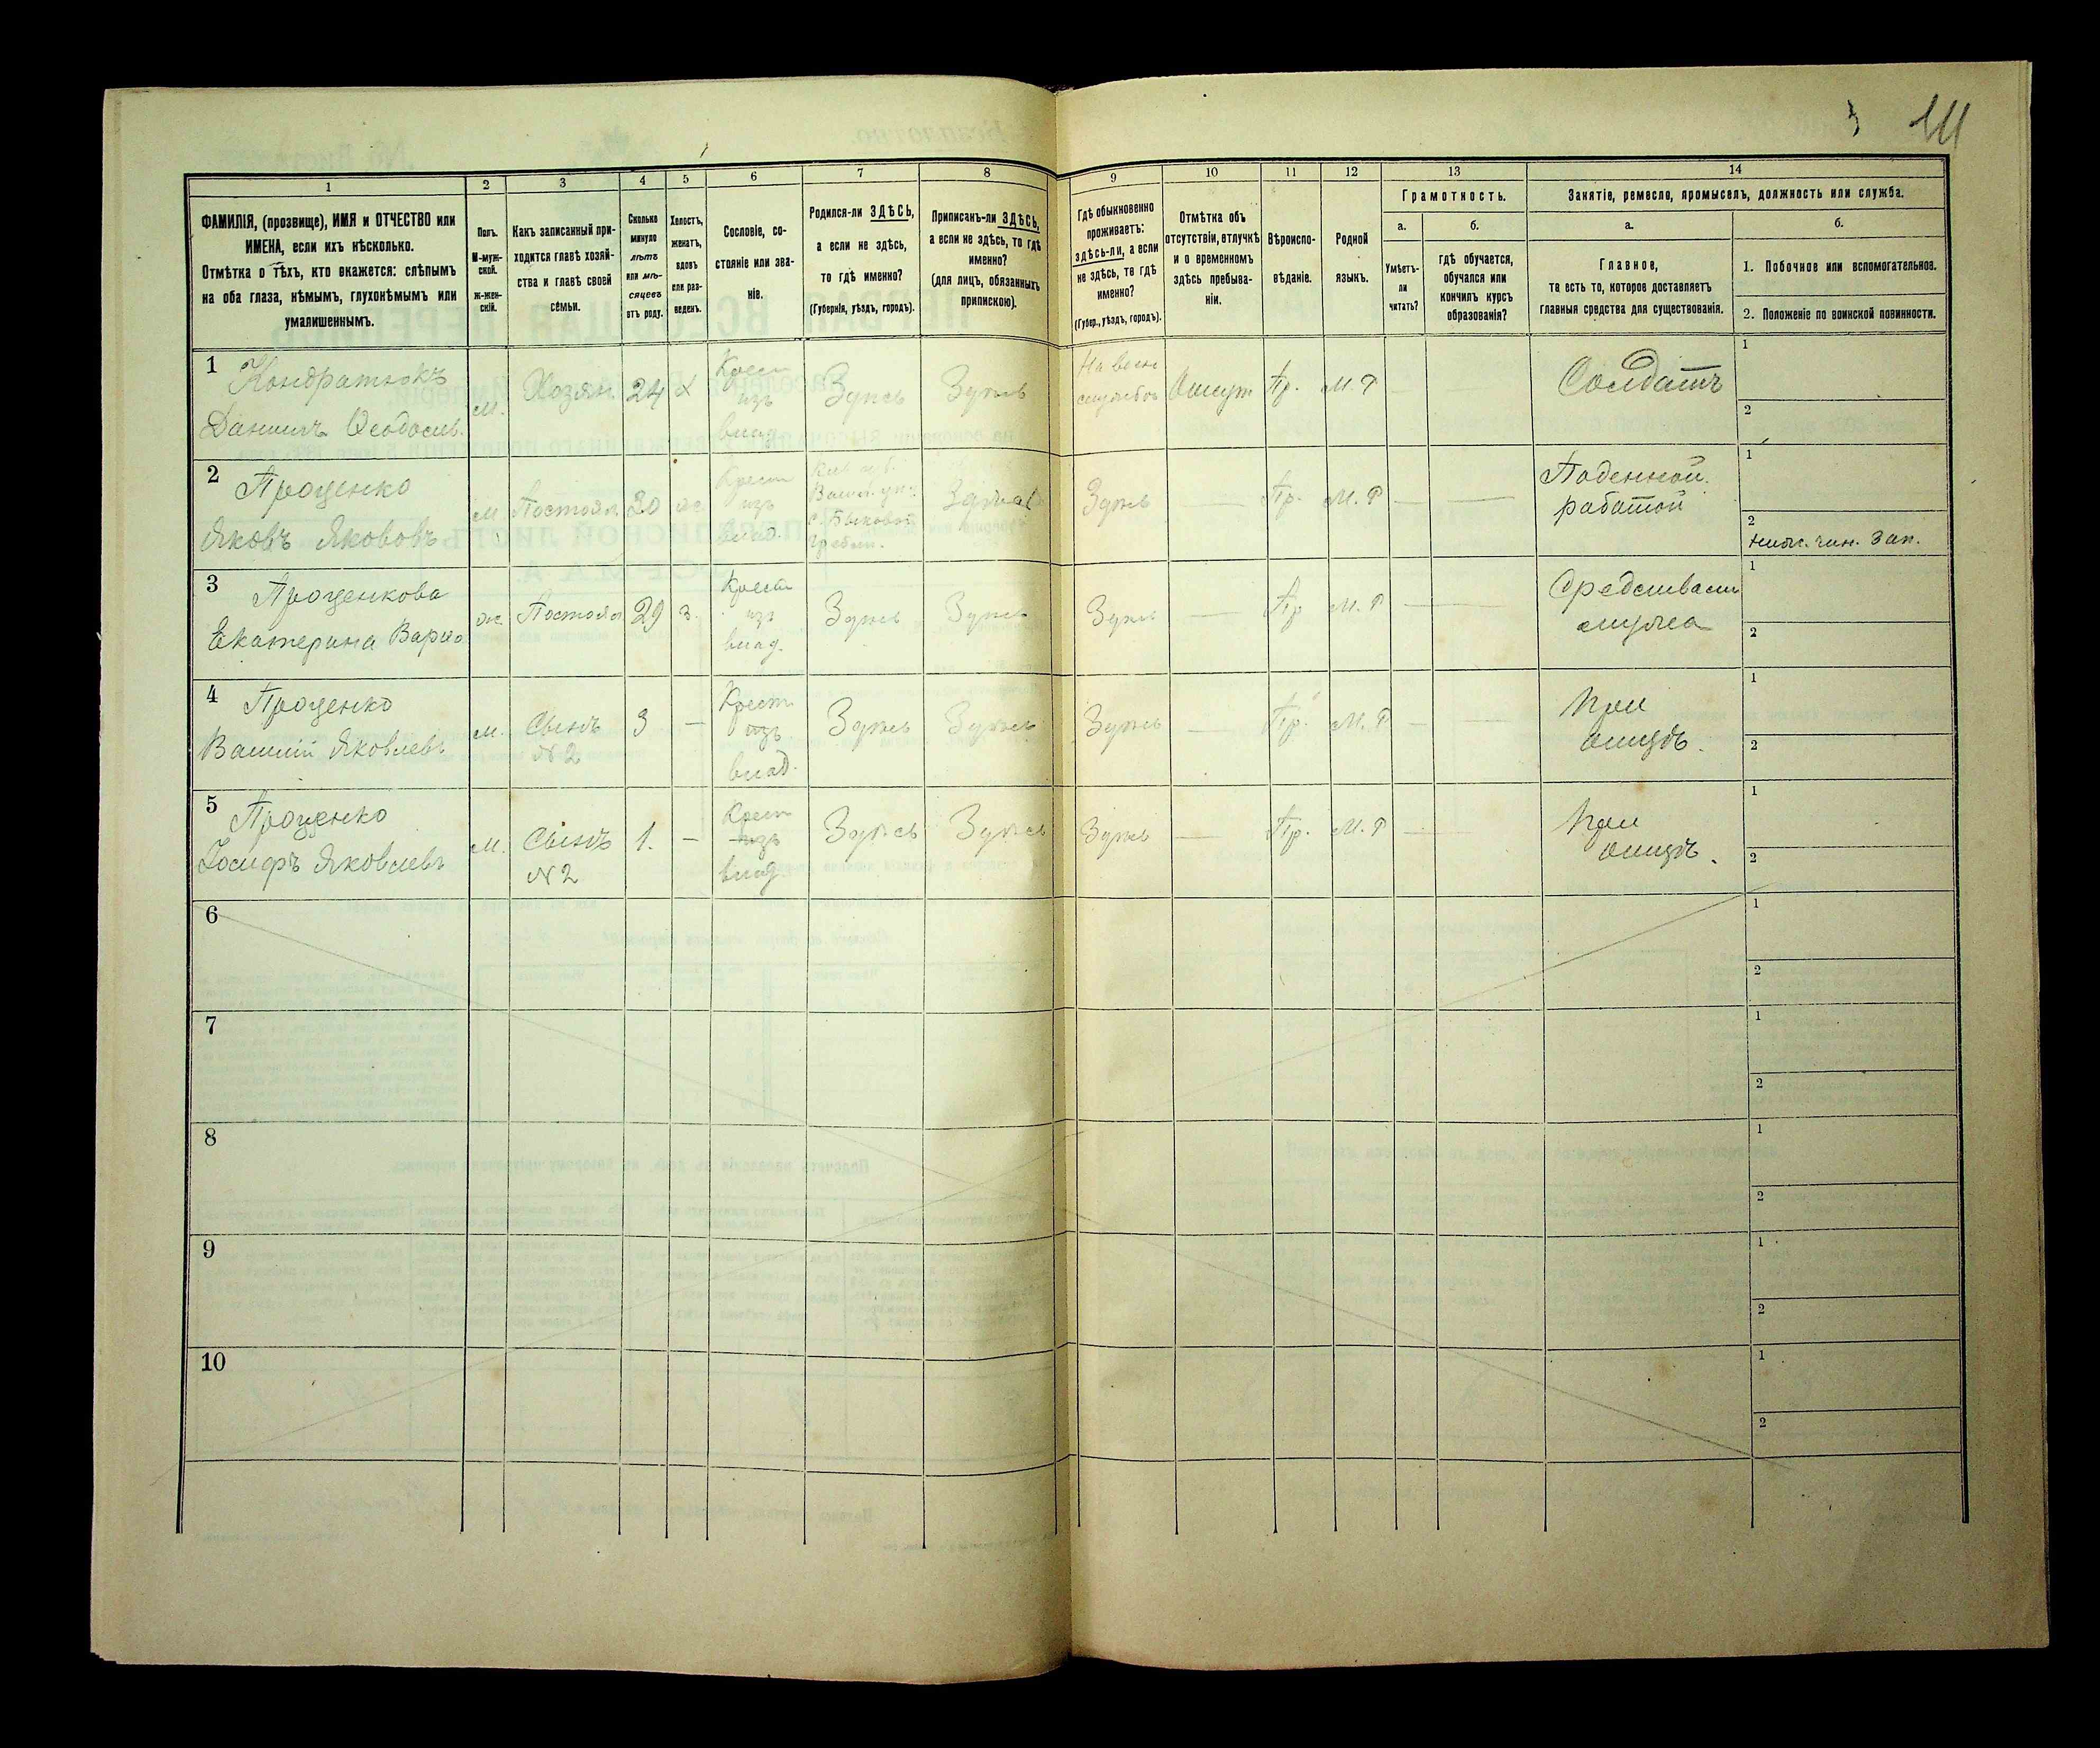 111
1
2
3
4
5
6
7
8
9
10
11
12
13
14
ФАМИЛІЯ, (прозвище), ИМЯ и ОТЧЕСТВО или
ИМЕНА, если ихъ нѣсколько.
Отмѣтка о тѣхъ, кто окажется: слѣпымъ
на оба глаза, нѣмымъ, глухонѣмымъ или
умалишеннымъ.
Полъ.
М-муж-
ской.
Ж-жен-
скій.
Какъ записанный при-
ходится главѣ хозяй-
ства и главѣ своей
семьи.
Сколько
минуло
лѣтъ
или мѣ-
сяцевъ
отъ роду.
Холостъ,
женатъ,
вдовъ
или раз-
веденъ.
Сословіе, со-
стояніе или зва-
ніе.
Родился-ли ЗДѢСЬ,
а если не здѣсь,
то гдѣ именно?
(Губернія, уѣздъ, городъ).
Приписанъ-ли ЗДѢСЬ,
а если не здѣсь, то гдѣ
именно?
(для лицъ, обязанныхъ
припискою).
Гдѣ обыкновенно
проживаетъ:
здѣсь-ли, а если
не здѣсь, то гдѣ
именно?
(Губер., уѣздъ, городъ).
Отмѣтка объ
отсутствіи, отлучкѣ
и о временномъ
здѣсь пребыва-
ніи.
Вѣроиспо-
вѣданіе.
Родной
языкъ.
Грамотность.
а.
б.
Умѣетъ-
ли
читать?
гдѣ обучается,
обучался или
кончилъ курсъ
образованія?
Занятіе, ремесло, промыселъ, должность или служба.
а.
б.
Главное,
то есть то, которое доставляетъ
главныя средства для существованія.
1. Побочное или вспомогательное.
2. Положеніе по воинской повинности.
1 Кондратюкъ
Даниилъ Ѳеодосіев.
м.
Хозяи.
24
х
Крест
изъ
влад
Здѣсь
Здѣсь
На воен
службѣ
Отсут
Пр.
М.Р
—
Солдатъ
1
2
2 Проценко
Яковъ Яковов
м
Постоял.
30
ж.
Крест
изъ
влад.
Здѣсь
Здѣсь
—
Пр.
М.Р
—
—
Поденной
работой
1
2
Нижн. чин. Зап.
3 Проценкова
Екатерина
ж.
Постоял
29
з.
Крест
изъ
влад.
Здѣсь
Здѣсь
Здѣсь
—
Пр
М.Р
—
—
Средствами
мужа
1
2
4 Проценко
Василій Яковлевъ
м.
Сынъ
№ 2
3
—
Крест
изъ
влад.
Здѣсь
Здѣсь
Здѣсь
—
Пр.
М.Р
—
—
При
отцѣ.
1
2
5 Проценко
Іосифъ Яковлевъ
м.
Сынъ
№ 2
1.
—
Крест
изъ
влад.
Здѣсь
Здѣсь
Здѣсь
—
Пр.
М.Р
—
При
отцѣ.
1
2
6
1
2
7
1
2
8
1
2
9
1
2
10
1
2